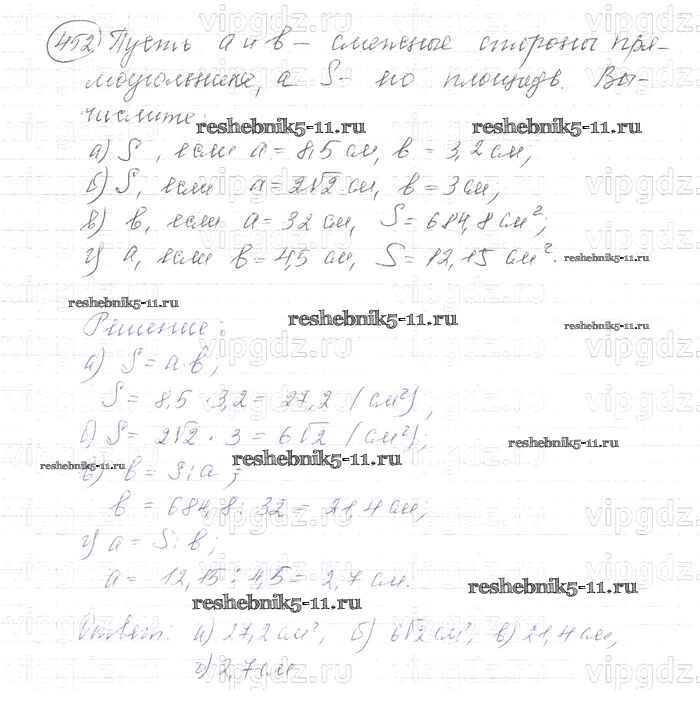 452) Пусть a и b – смежные стороны пря-
моугольника, а S – его площадь. Вы-
числите:
reshebnik5-11.ru reshebnik5-11.ru
а) S, если a = 8,5 см, b = 3,2 см,
б) S, если a = 2√2 см, b = 3 см,
в) b, если a = 32 см, S = 684,8 см²;
г) a, если b = 4,5 см, S = 12,15 см².
reshebnik5-11.ru
reshebnik5-11.ru
reshebnik5-11.ru
reshebnik5-11.ru
Решение:
а) S = a·b,
S = 8,5 · 3,2 = 27,2 (см²),
б) S = 2√2 · 3 = 6√2 (см²);
reshebnik5-11.ru
reshebnik5-11.ru
reshebnik5-11.ru
в) b = S : a;
b = 684,8 : 32 = 21,4 см;
г) a = S : b;
a = 12,15 : 4,5 = 2,7 см.
reshebnik5-11.ru
reshebnik5-11.ru
Ответ: а) 27,2 см², б) 6√2 см², в) 21,4 см,
г) 2,7 см
vipgdz.ru